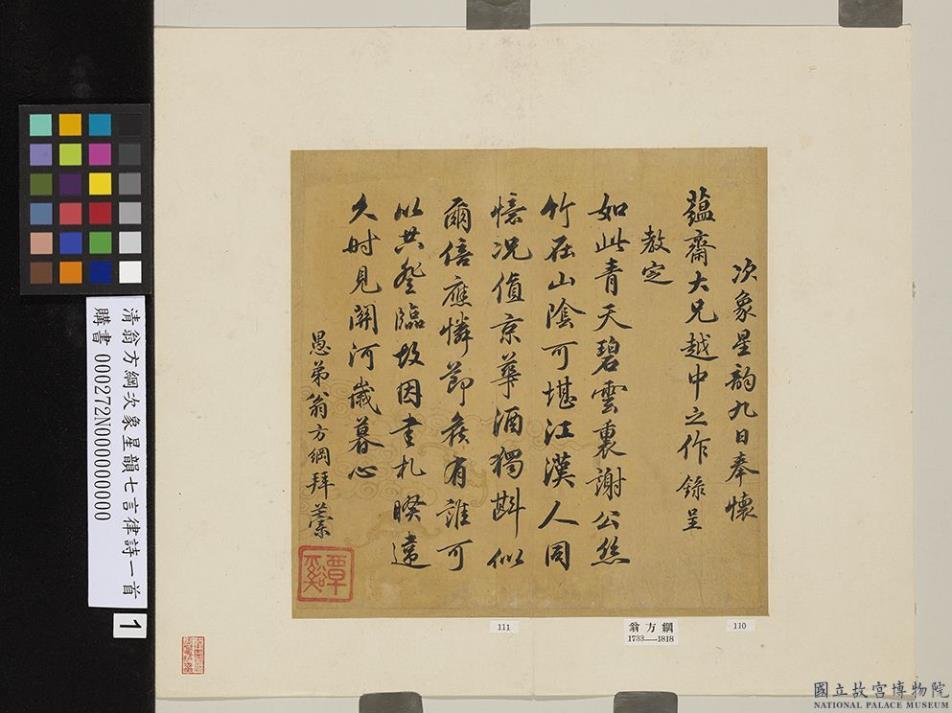 次象星韵九日奉懷
蘊齋大兄越中之作錄呈
教定
如此青天碧雲裏謝公絲
竹在山陰可堪江漢人同
憶況值京華酒獨斟似
爾倍應憐節候有誰可
以共登臨故因書札暌違
久時見關河歲暮心
愚弟翁方綱拜藁
覃谿
110
翁方綱
1733—1818
111
清翁方綱次象星韻七言律詩一首
購書 000272N000000000
1
國立故宮博物院
NATIONAL PALACE MUSEUM